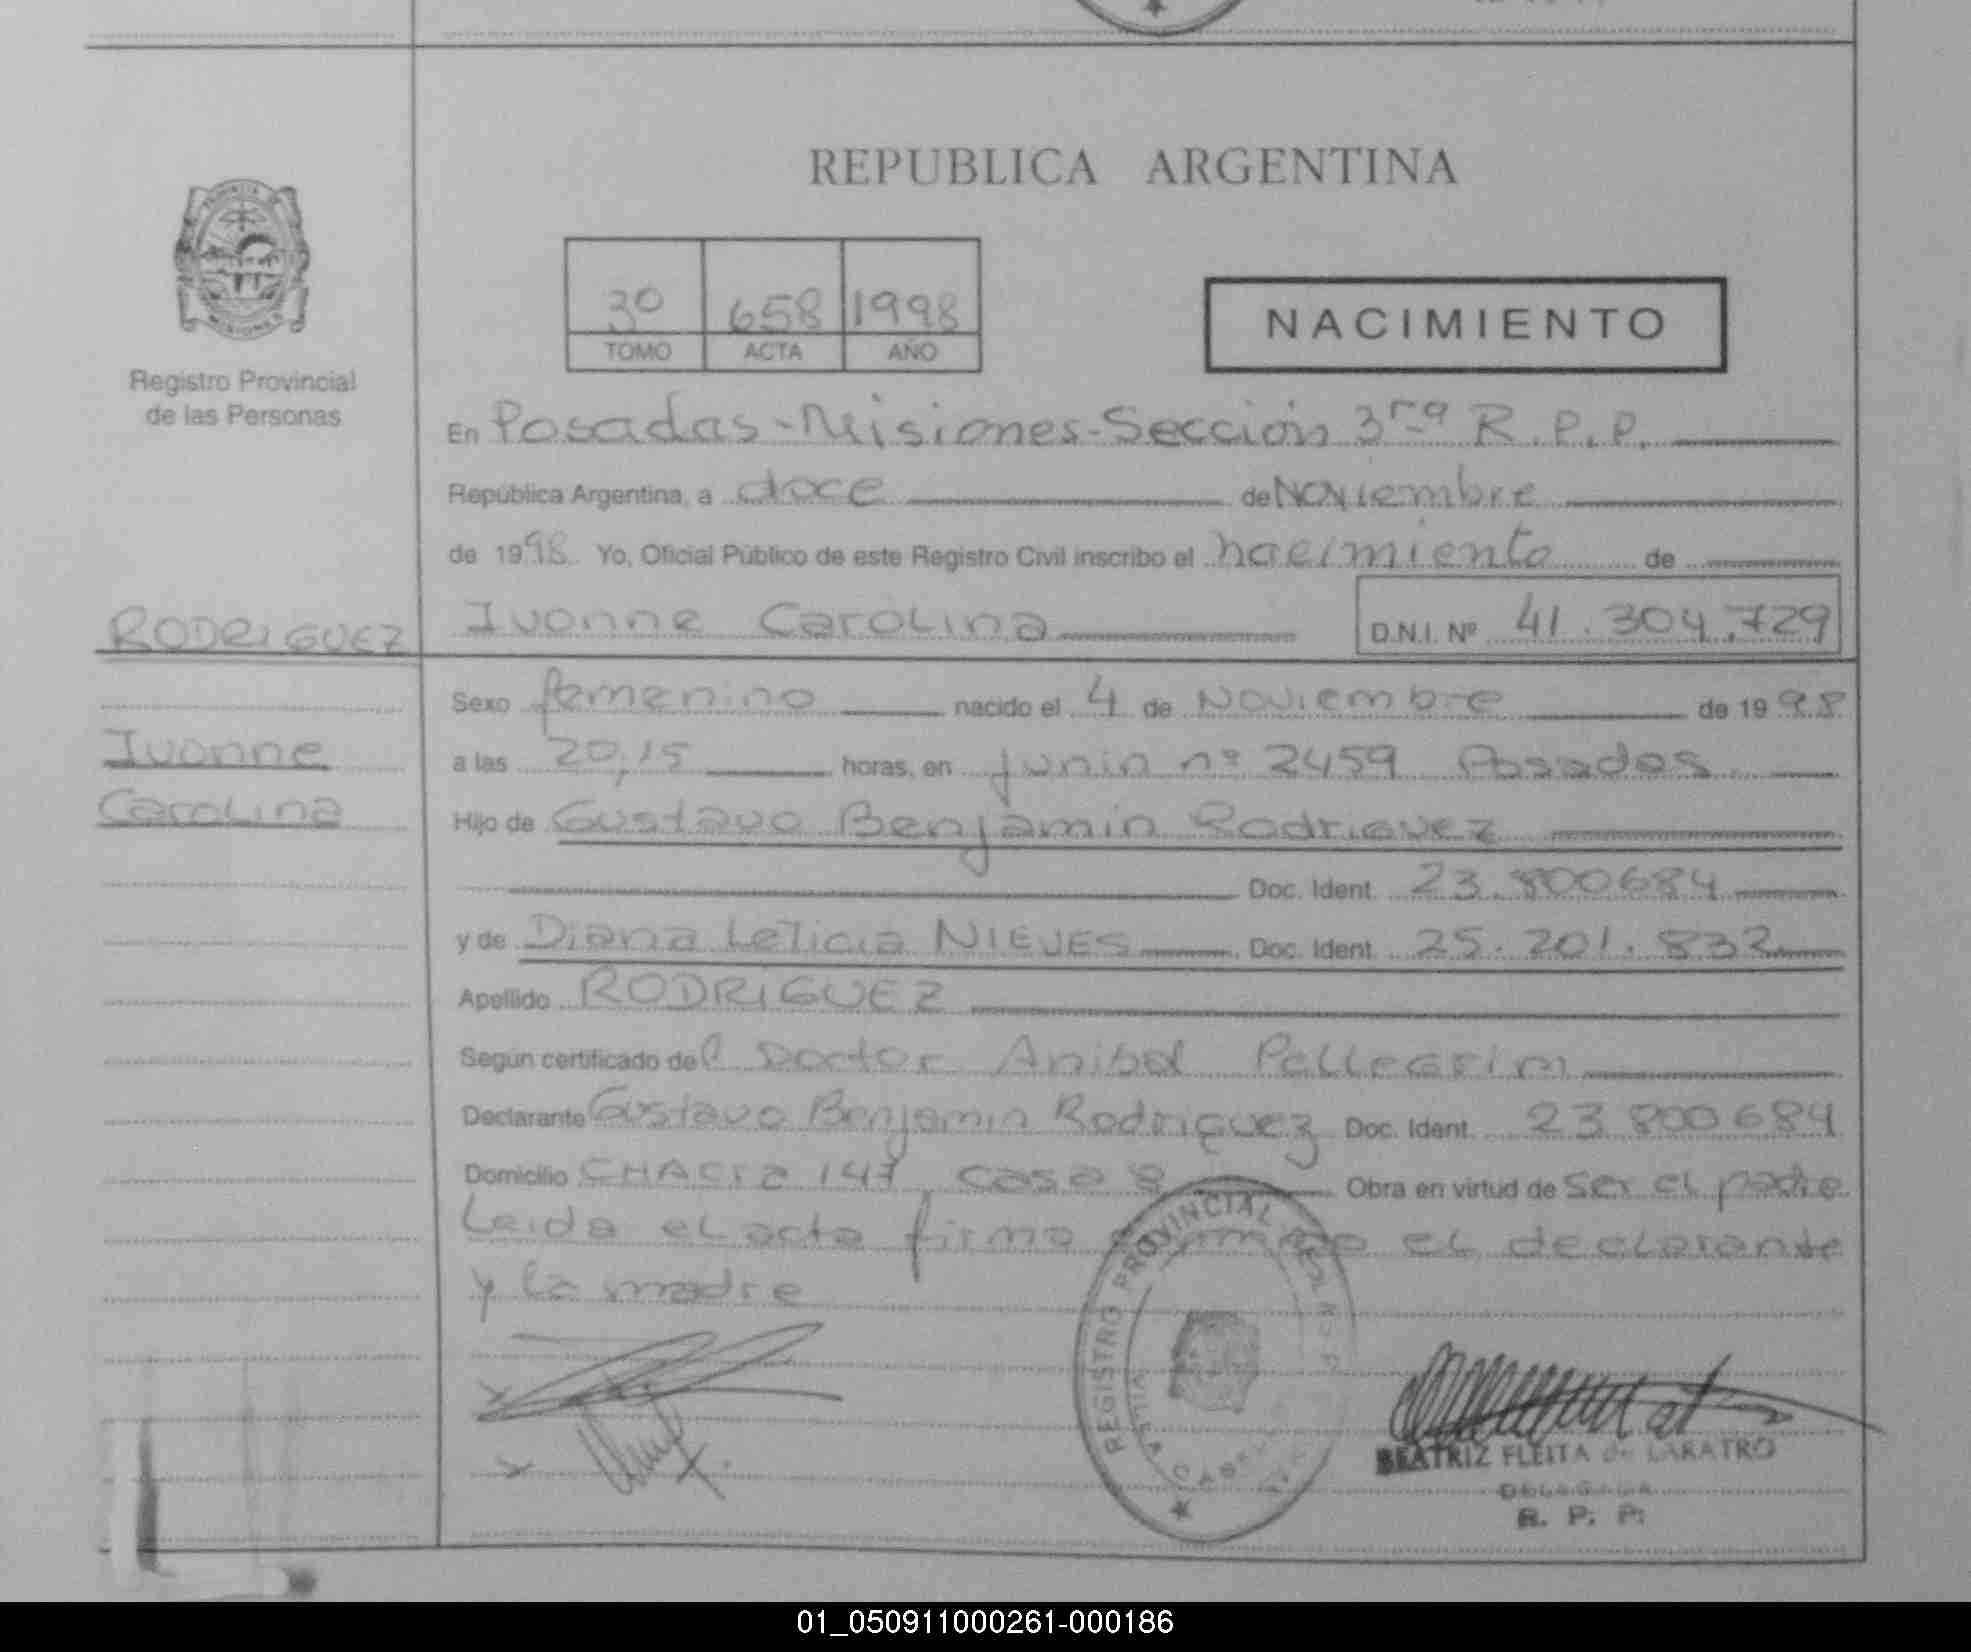 REPUBLICA ARGENTINA
PROVINCIA
MISIONES
Registro Provincial
de las Personas
3º 658 1998
TOMO ACTA AÑO
NACIMIENTO
En Posadas-Misiones-Sección 3ra R.P.P.
República Argentina, a doce de Noviembre
de 1998 Yo, Oficial Público de este Registro Civil inscribo el nacimiento de
RODRIGUEZ Ivonne Carolina D.N.I. Nº 41.304.729
Sexo femenino nacido el 4 de Noviembre de 1998
Ivonne
a las 20,15 horas, en junin nº 2459 Posadas
Carolina
Hijo de Gustavo Benjamin Rodriguez
Doc. Ident. 23.800684
y de Diana Leticia NIEVES Doc. Ident. 25.201.832
Apellido RODRIGUEZ
Según certificado del Doctor Anibal
Declarante Gustavo Benjamin Rodriguez Doc. Ident. 23 800684
Domicilio CHACra 147 casa 8 Obra en virtud de ser el padre
Leida el acta firma el declarante
y la madre
REGISTRO PROVINCIAL
BEATRIZ FLEITA de LARATRO
DELEGADA
R. P. P.
01_050911000261-000186